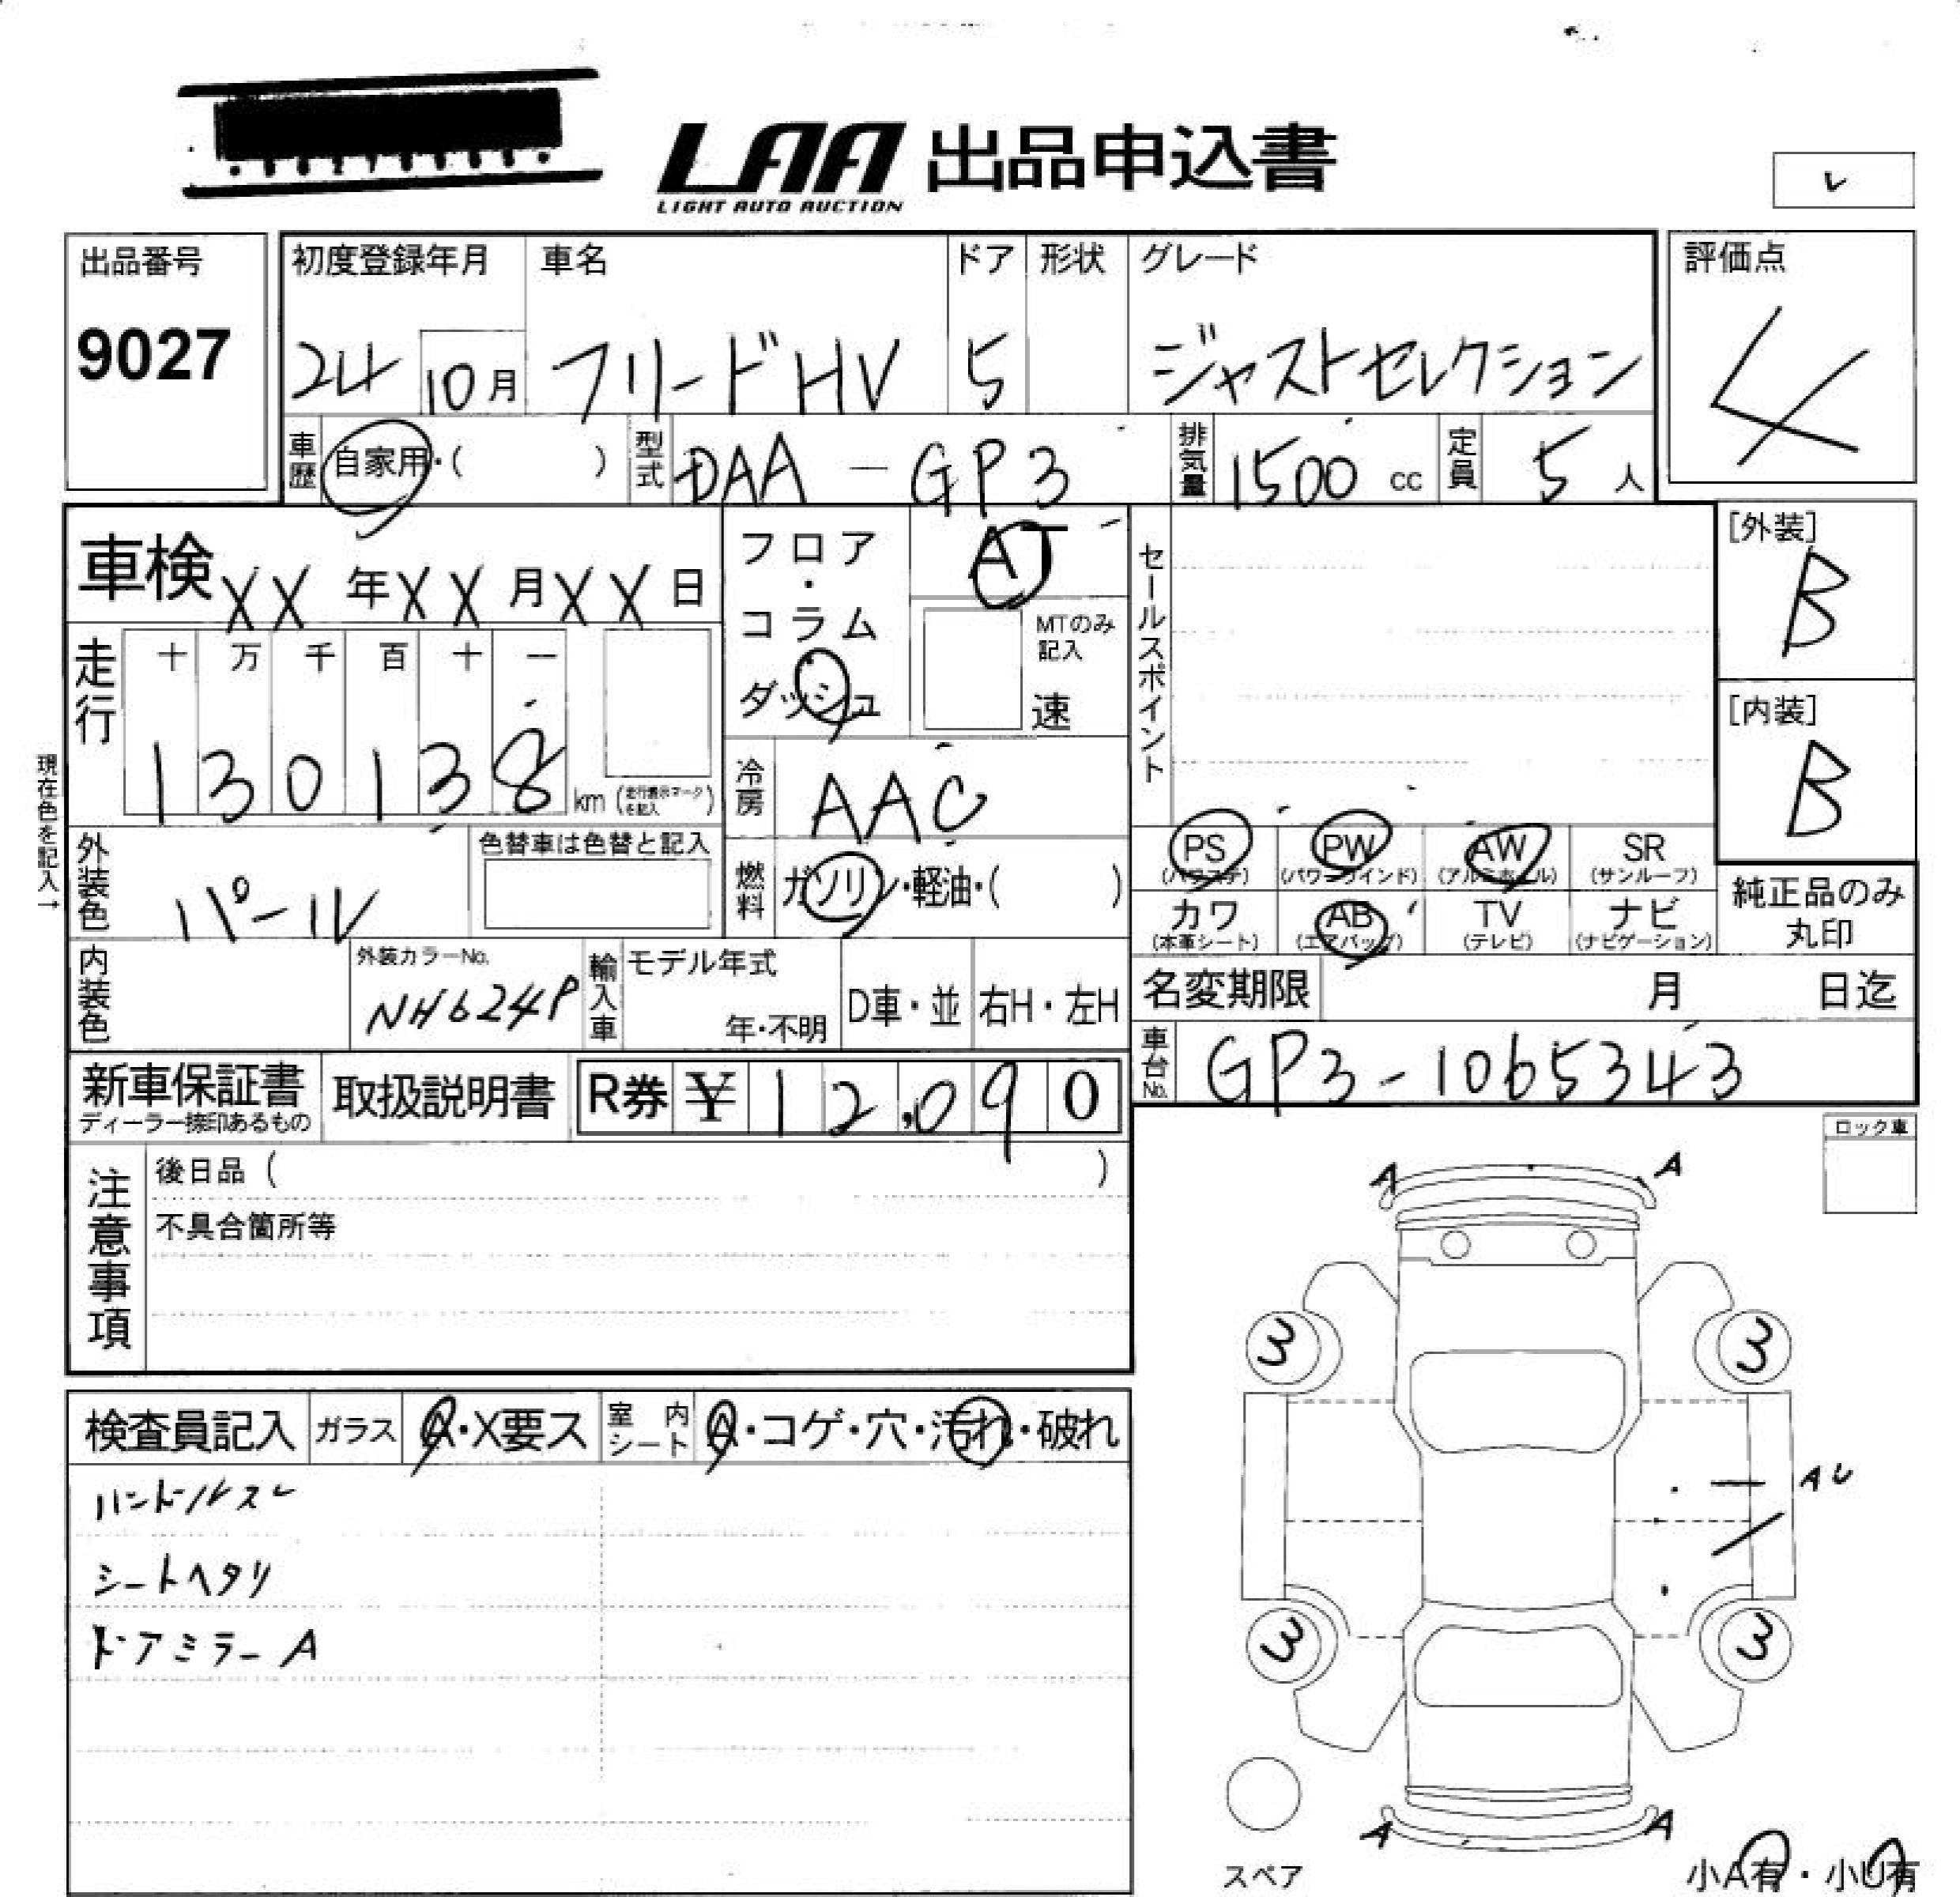 LAA 出品申込書
LIGHT AUTO AUCTION
レ
出品番号
9027
初度登録年月 車名 ドア 形状 グレード
24 10月 フリードHV 5 ジャストセレクション
評価点
4
車歴 自家用・( ) 型式 DAA-GP3 排気量 1500 cc 定員 5 人
車検 XX 年 XX 月 XX 日
フロア・コラム・ダッシュ
AT
MTのみ記入
速
セールスポイント
[外装]
B
[内装]
B
走行 十 万 千 百 十 一
130138 km (走行表示マークを記入)
現在色を記入→
冷房 AAC
外装色 パール
色替車は色替と記入
燃料 ガソリン・軽油・( )
PS (パワステ) PW (パワーウインド) AW (アルミホイール) SR (サンルーフ)
カワ (本革シート) AB (エアバッグ) TV (テレビ) ナビ (ナビゲーション)
純正品のみ丸印
内装色
外装カラーNo.
NH624P
輸入車 モデル年式
年・不明
D車・並 右H・左H
名変期限 月 日迄
車台No. GP3-1065343
新車保証書
ディーラー捺印あるもの
取扱説明書
R券 ¥ 12,090
注意事項
後日品 ( )
不具合箇所等
ロック車
検査員記入 ガラス A・X要ス 室内シート A・コゲ・穴・汚れ・破れ
ハンドルスレ
シートヘタリ
ドアミラーA
A A
3 3
AU
3 3
A A
スペア
小A有・小U有